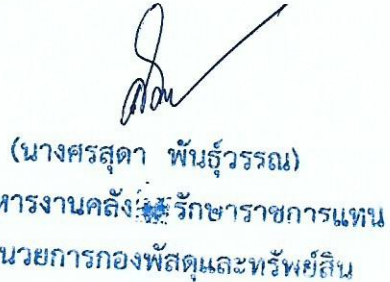 (นางศรสุดา พันธุ์วรรณ)
หารงานคลัง รักษาราชการแทน
นวยการกองพัสดุและทรัพย์สิน